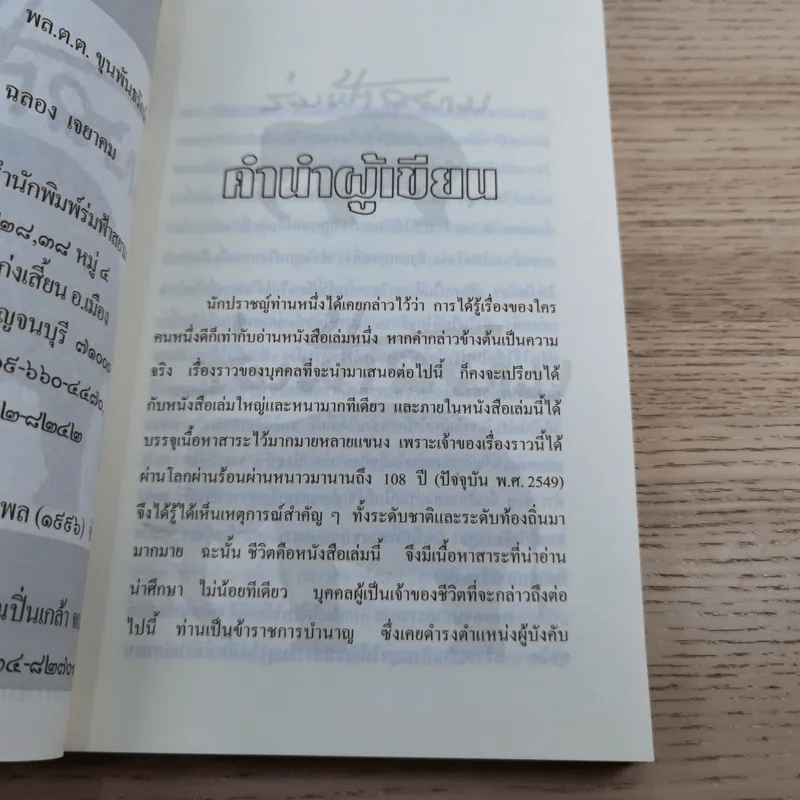 พล.ต.ต.
ฉลอง เจยาคม
๒๘,๓๘ หมู่ ๔
อ.เมือง
๗๑๐๐๐
(๑๙๙๖)
คำนำผู้เขียน
นักปราชญ์ท่านหนึ่งได้เคยกล่าวไว้ว่า การได้รู้เรื่องของใคร
คนหนึ่งดีก็เท่ากับอ่านหนังสือเล่มหนึ่ง หากคำกล่าวข้างต้นเป็นความ
จริง เรื่องราวของบุคคลที่จะนำมาเสนอต่อไปนี้ ก็คงจะเปรียบได้
กับหนังสือเล่มใหญ่และหนามากทีเดียว และภายในหนังสือเล่มนี้ได้
บรรจุเนื้อหาสาระไว้มากมายหลายแขนง เพราะเจ้าของเรื่องราวนี้ได้
ผ่านโลกผ่านร้อนผ่านหนาวมานานถึง 108 ปี (ปัจจุบัน พ.ศ. 2549)
จึงได้รู้ได้เห็นเหตุการณ์สำคัญ ๆ ทั้งระดับชาติและระดับท้องถิ่นมา
มากมาย ฉะนั้น ชีวิตคือหนังสือเล่มนี้ จึงมีเนื้อหาสาระที่น่าอ่าน
น่าศึกษา ไม่น้อยทีเดียว บุคคลผู้เป็นเจ้าของชีวิตที่จะกล่าวถึงต่อ
ไปนี้ ท่านเป็นข้าราชการบำนาญ ซึ่งเคยดำรงตำแหน่งผู้บังคับ